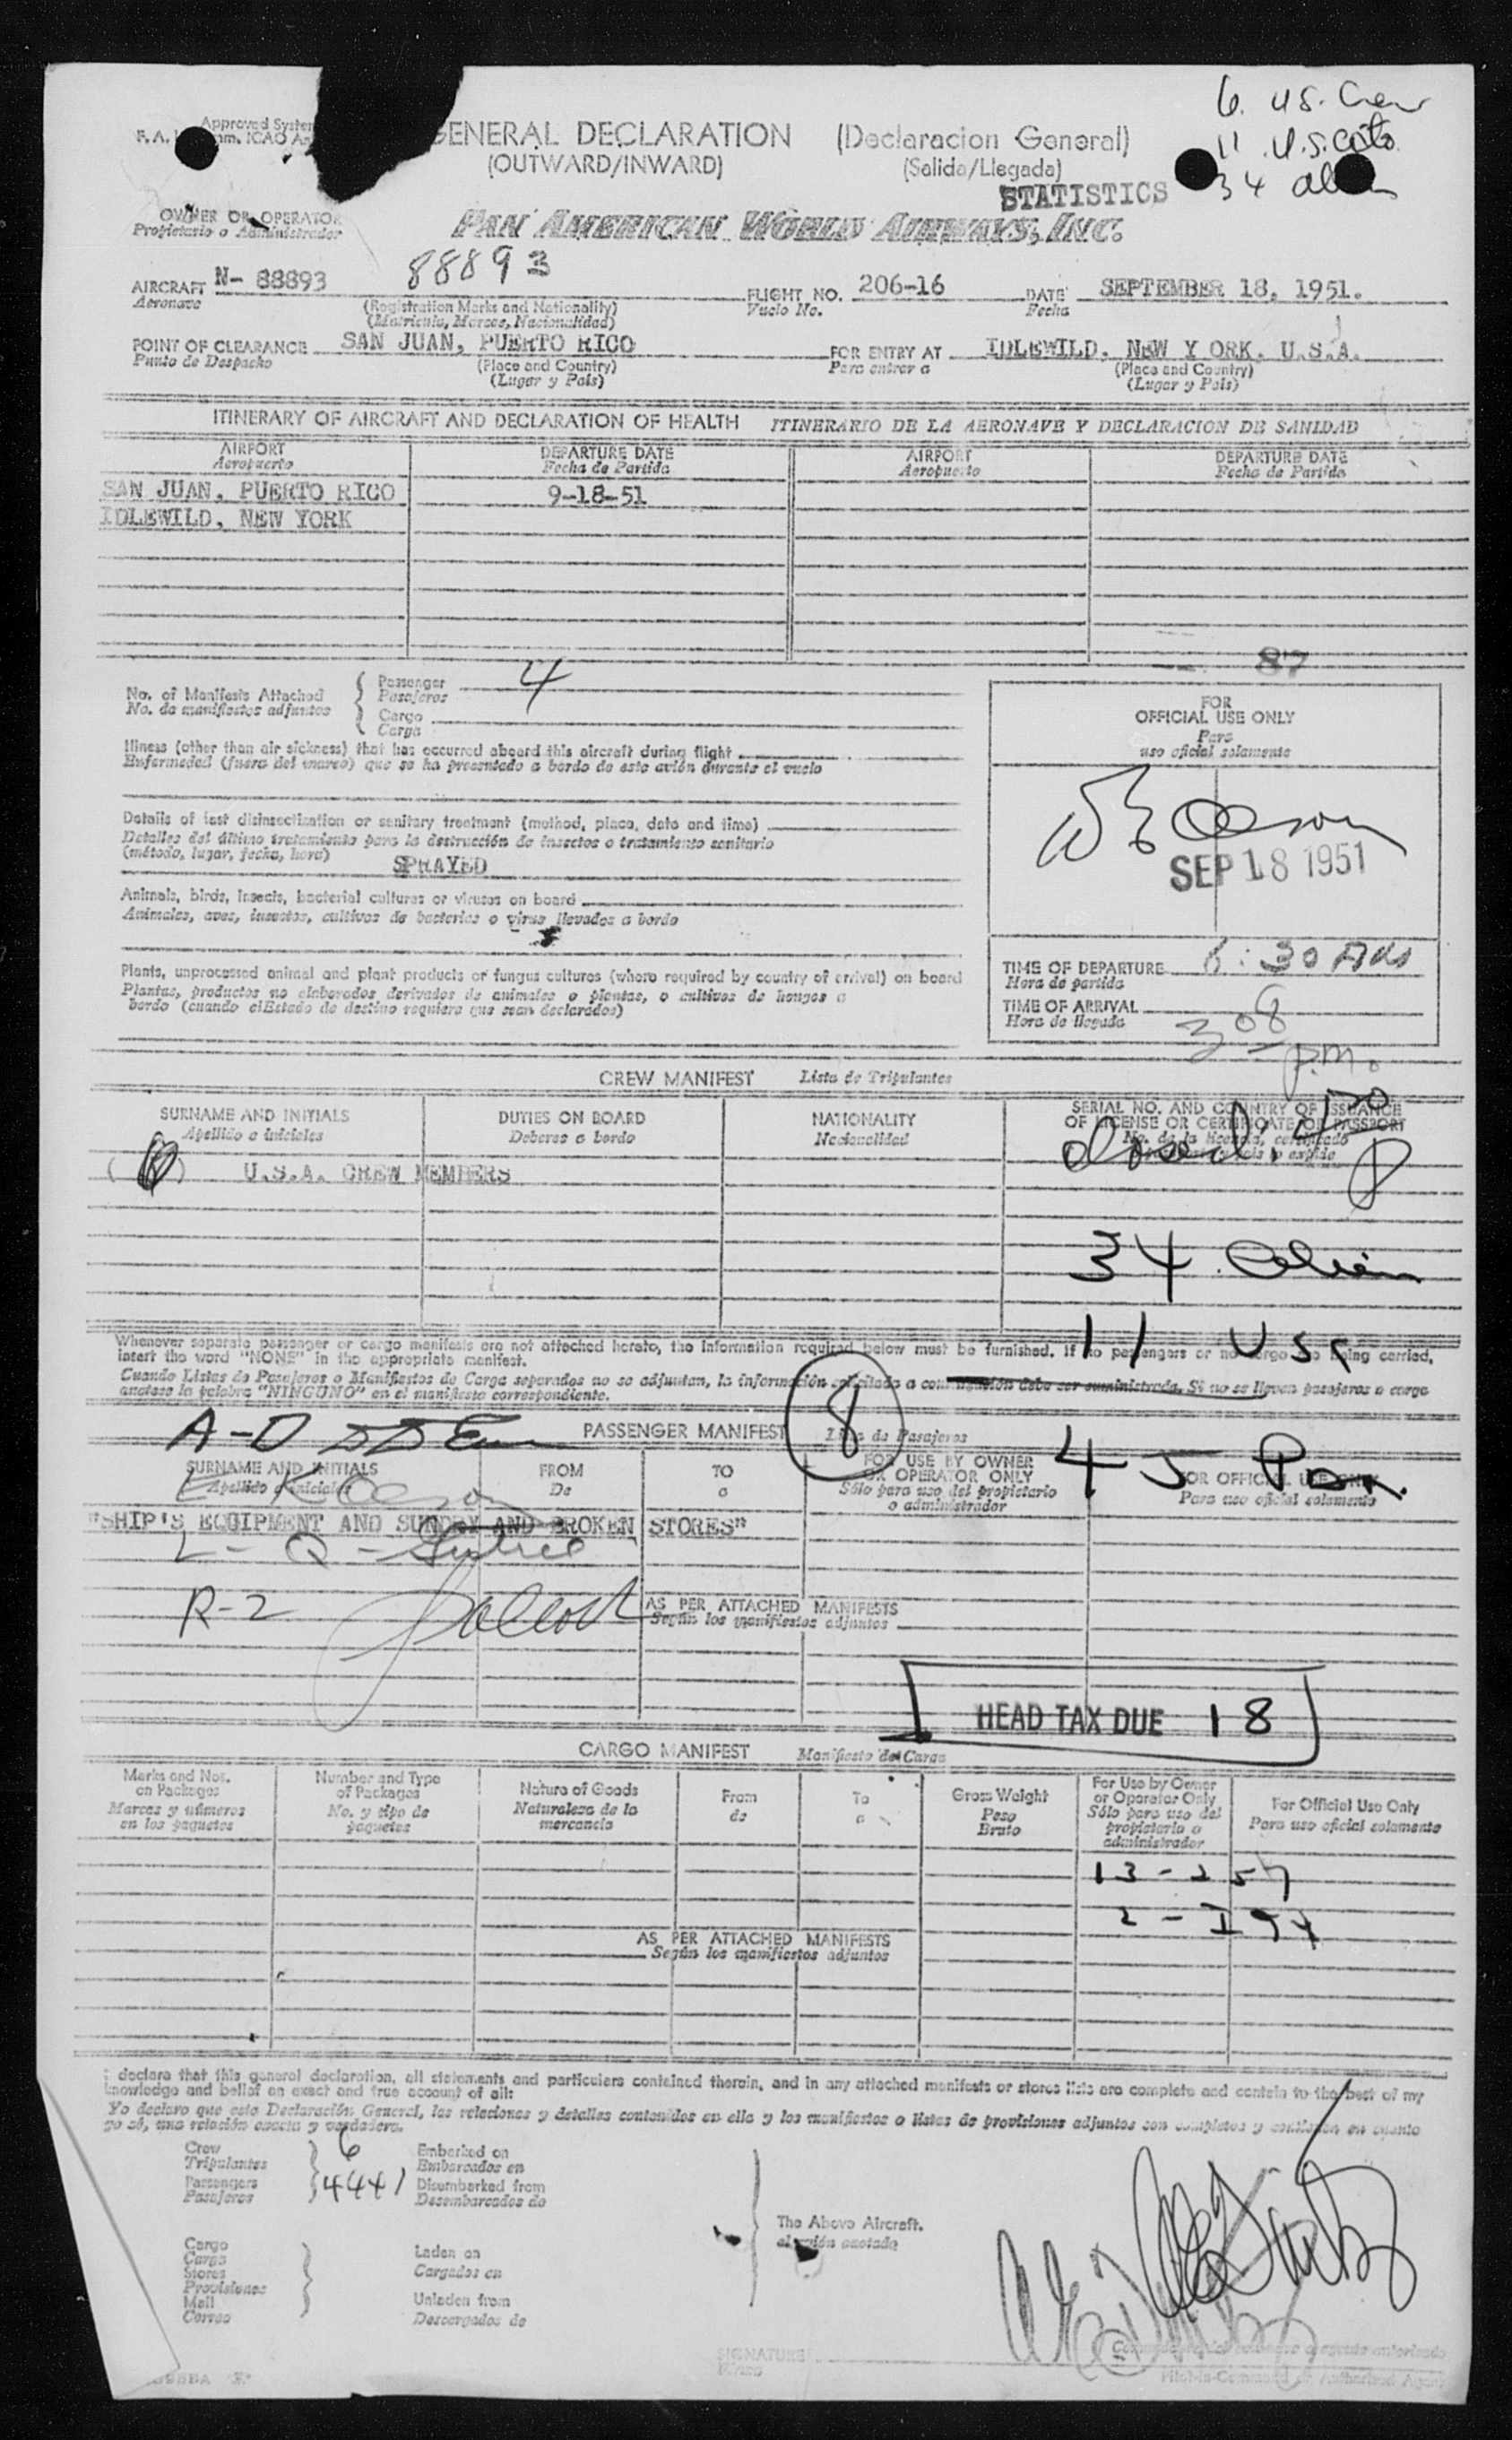 6. U.S. Crew
11 U.S. Cits.
34 alien
Approved System
GENERAL DECLARATION (Declaracion General)
(OUTWARD/INWARD) (Salida/Llegada)
STATISTICS
OWNER OR OPERATOR
Propietario o Administrador
PAN AMERICAN WORLD AIRWAYS, INC.
88893
AIRCRAFT N- 88893 FLIGHT NO. 206-16 DATE SEPTEMBER 18, 1951.
Aeronave (Registration Marks and Nationality) Vuelo No. Fecha
(Matricula, Marcas, Nacionalidad)
POINT OF CLEARANCE SAN JUAN, PUERTO RICO FOR ENTRY AT IDLEWILD, NEW Y ORK, U.S.A.
Punto de Despacho (Place and Country) Para entrar a (Place and Country)
(Lugar y Pais) (Lugar y Pais)
ITINERARY OF AIRCRAFT AND DECLARATION OF HEALTH ITINERARIO DE LA AERONAVE Y DECLARACION DE SANIDAD
AIRPORT DEPARTURE DATE AIRPORT DEPARTURE DATE
Aeropuerto Fecha de Partida Aeropuerto Fecha de Partida
SAN JUAN, PUERTO RICO 9-18-51
IDLEWILD, NEW YORK
87
No. of Manifests Attached Passenger 4
No. de manifiestos adjuntos Pasajeros
Cargo
Carga
FOR
OFFICIAL USE ONLY
Para
uso oficial solamente
Illness (other than air sickness) that has occurred aboard this aircraft during flight
Enfermedad (fuera del mareo) que se ha presentado a bordo de este avión durante el vuelo
Details of last disinsectization or sanitary treatment (method, place, date and time)
Detalles del último tratamiento para la destrucción de insectos o tratamiento sanitario
(método, lugar, fecha, hora)
SPRAYED
SEP 18 1951
Animals, birds, insects, bacterial cultures or viruses on board
Animales, aves, insectos, cultivos de bacterias o virus llevados a bordo
Plants, unprocessed animal and plant products or fungus cultures (where required by country of arrival) on board
Plantas, productos no elaborados derivados de animales o plantas, o cultivos de hongos a
bordo (cuando el Estado de destino requiera que sean declarados)
TIME OF DEPARTURE :30 AM
Hora de partida
TIME OF ARRIVAL 3 08
Hora de llegada p.m.
CREW MANIFEST Lista de Tripulantes
SURNAME AND INITIALS DUTIES ON BOARD NATIONALITY SERIAL NO. AND COUNTRY OF ISSUANCE
OF LICENSE OR CERTIFICATE OR PASSPORT
Apellido e iniciales Deberes a bordo Nacionalidad No. de la licencia, certificado
U.S.A. CREW MEMBERS
34 Alien
11 USC
Whenever separate passenger or cargo manifests are not attached hereto, the information required below must be furnished. If no passengers or no cargo are being carried,
insert the word "NONE" in the appropriate manifest.
Cuando Listas de Pasajeros o Manifiestos de Carga separados no se adjuntan, la información solicitada a continuación debe ser suministrada. Si no se llevan pasajeros o carga
anótese la palabra "NINGUNO" en el manifiesto correspondiente.
PASSENGER MANIFEST 8 Lista de Pasajeros
45 Pax.
SURNAME AND INITIALS FROM TO FOR USE BY OWNER
OR OPERATOR ONLY FOR OFFICIAL USE ONLY
Apellido e iniciales De a Sólo para uso del propietario
o administrador Para uso oficial solamente
"SHIP'S EQUIPMENT AND SUNDRY AND BROKEN STORES"
R-2
AS PER ATTACHED MANIFESTS
Según los manifiestos adjuntos
HEAD TAX DUE 18
CARGO MANIFEST Manifiesto de Carga
Marks and Nos.
on Packages
Marcas y números
en los paquetes
Number and Type
of Packages
No. y tipo de
paquetes
Nature of Goods
Naturaleza de la
mercancia
From
de
To
a
Gross Weight
Peso
Bruto
For Use by Owner
or Operator Only
Sólo para uso del
propietario o
administrador
For Official Use Only
Para uso oficial solamente
AS PER ATTACHED MANIFESTS
Según los manifiestos adjuntos
I declare that this general declaration, all statements and particulars contained therein, and in any attached manifests or stores lists are complete and contain to the best of my
knowledge and belief an exact and true account of all:
Yo declaro que esta Declaración General, las relaciones y detalles contenidos en ella y los manifiestos o listas de provisiones adjuntos son completos y contienen en cuanto
yo sé, una relación exacta y verdadera.
Crew 6 Embarked on
Tripulantes Embarcados en
Passengers 44+1 Disembarked from
Pasajeros Desembarcados de
The Above Aircraft.
el avión anotado
Cargo
Carga
Stores
Provisiones
Mail
Correo
Laden on
Cargados en
Unladen from
Descargados de
SIGNATURE
Firma
Pilot-in-Command or Authorized Agent